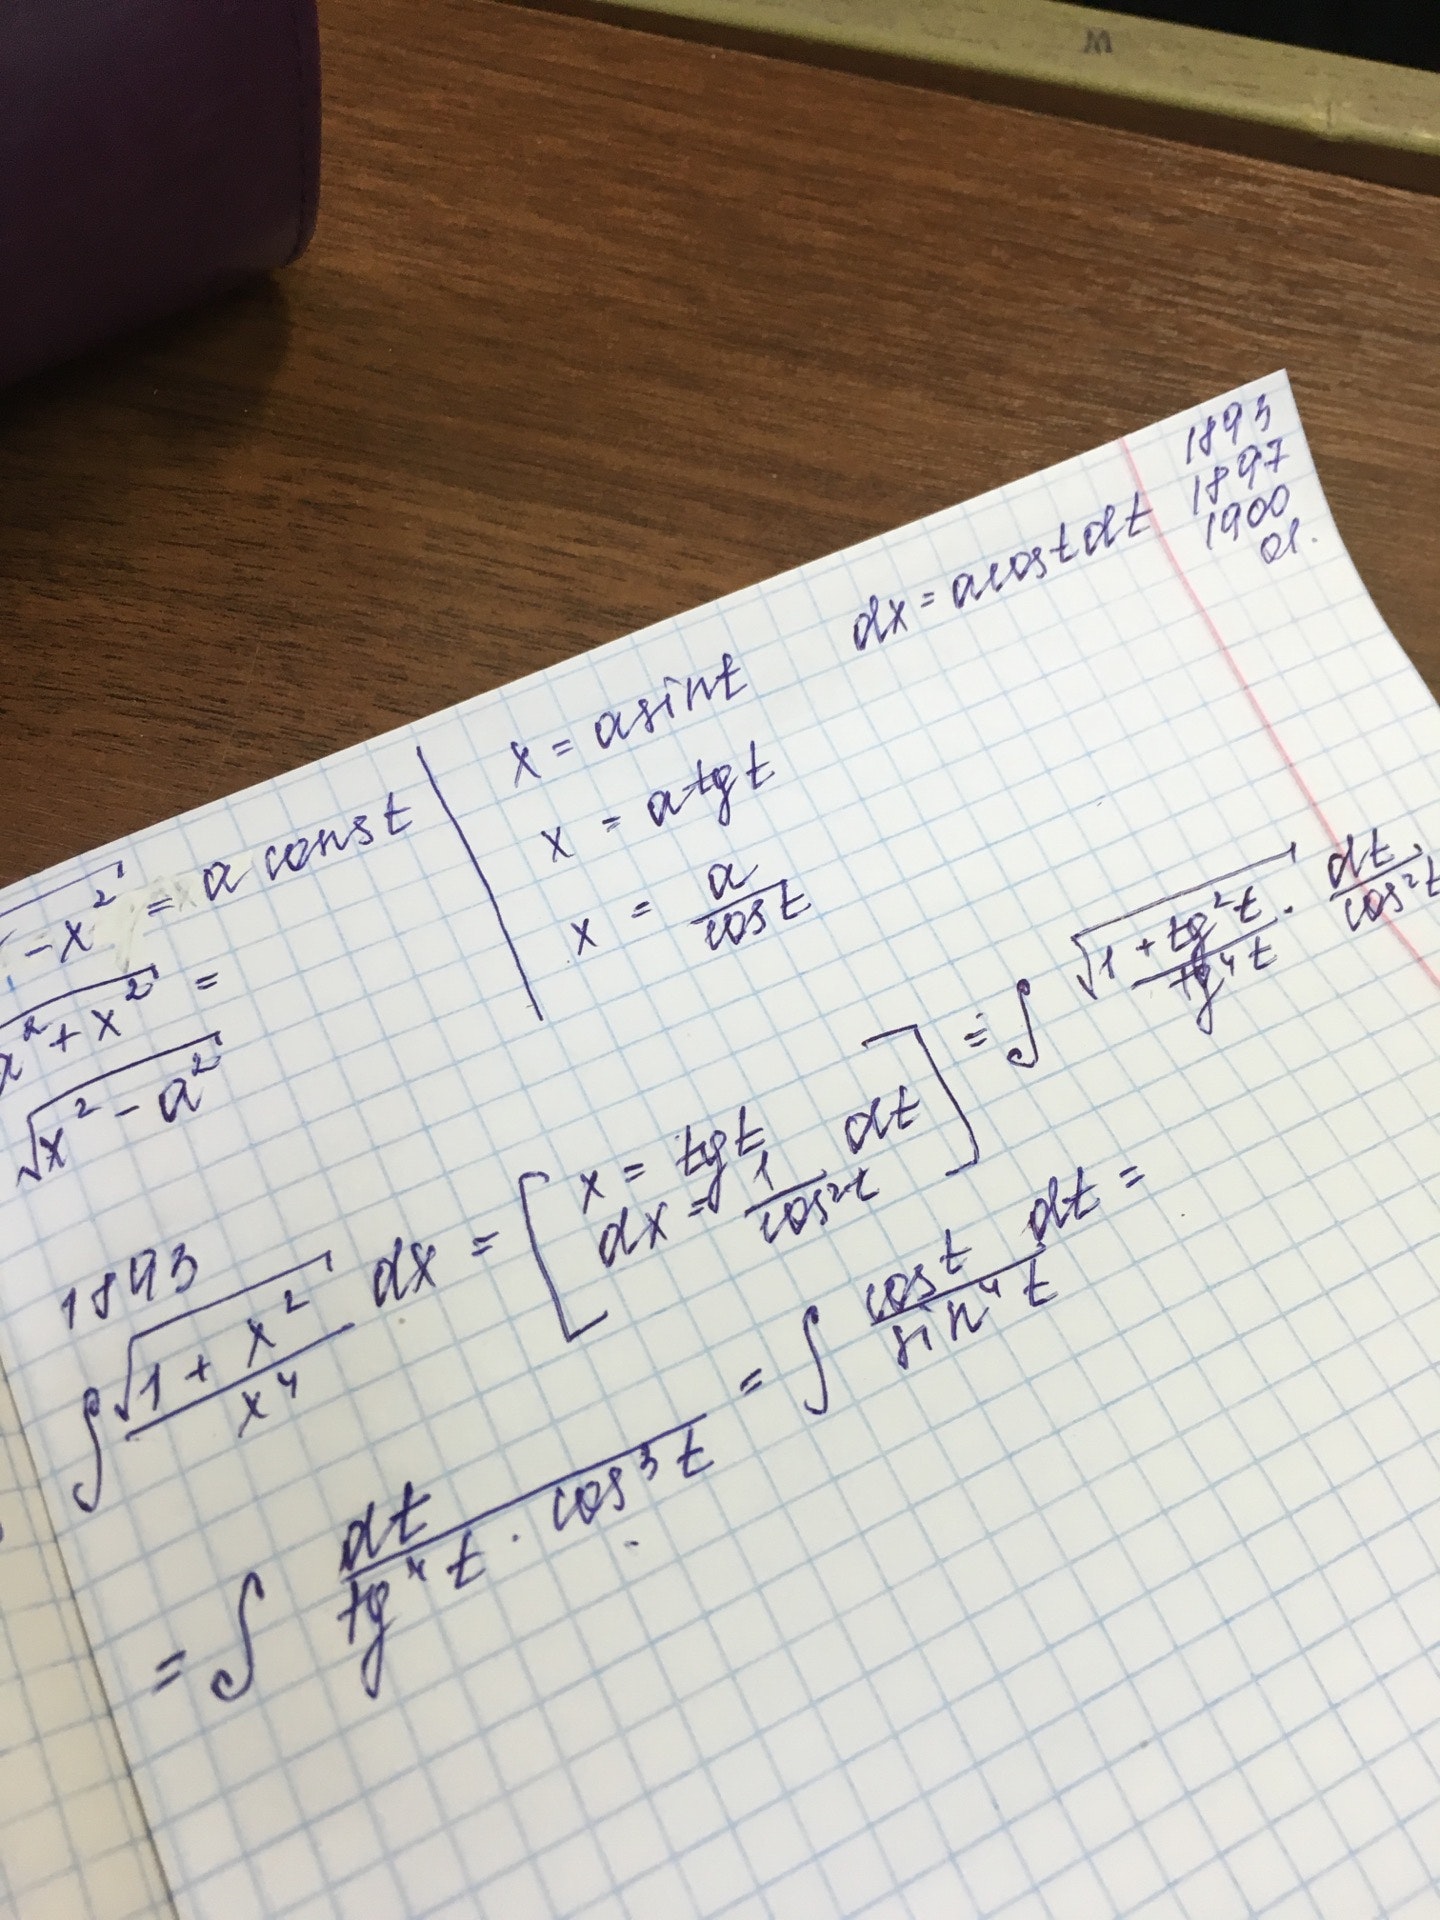 1893
1897
1900
01.
-x² = a cost | x = a sint dx = a cost dt
a²+x² = | x = a tg t
√x²-a² | x = a/cos t
1893
∫ √1+x²/x⁴ dx = [x = tg t dx = 1/cos²t dt] = ∫ √1+tg²t/tg⁴t · dt/cos²t =
= ∫ dt/tg⁴t · cos³t = ∫ cos t/sin⁴t dt =